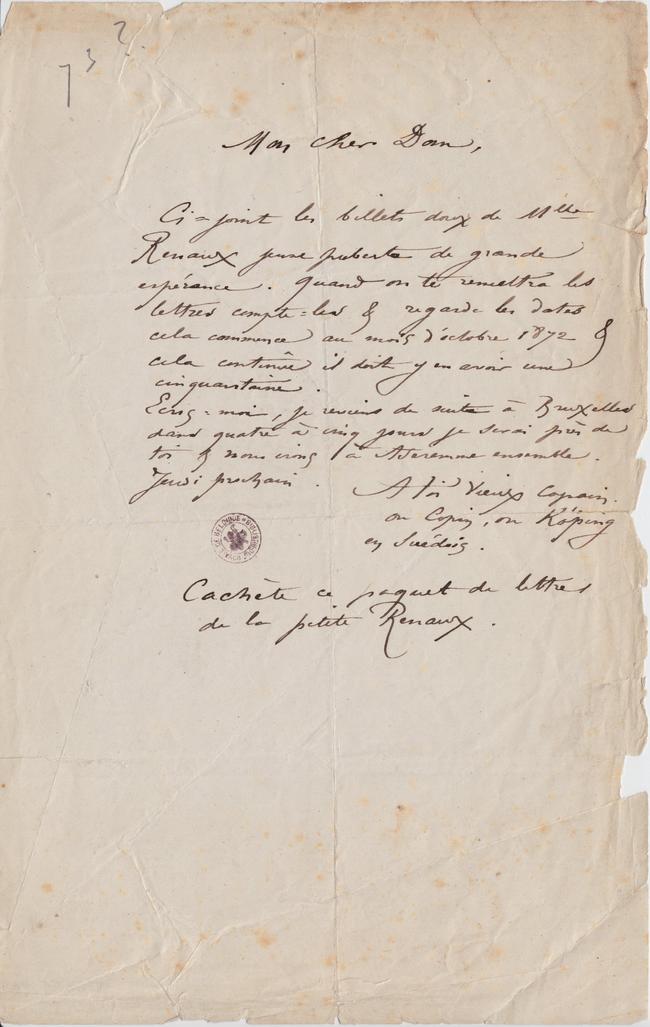 73 ?
Mon cher Dom,
Ci=joint les billets doux de Mlle
Renaux jeune puberte de grande
espérance. Quand on te remettra les
lettres compte=les & regarde les dates
cela commence au mois d'octobre 1872 &
cela continue il doit y en avoir une
cinquantaine.
Ecris=moi, je reviens de suite à Bruxelles
dans quatre à cinq jours je serai près de
toi & nous irons à Anseremme ensemble.
Jeudi prochain.
A toi Vieux Copain.
ou Copin, ou Köping
en Suédois.
Cachète ce paquet de lettres
de la petite Renaux.